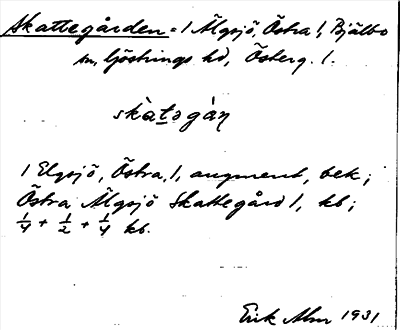 Skattegården = / Älgsjö, Östra /, Bjälbo
sn, Göstrings hd, Österg. l.
skàtəgàṇ
/ Elgsjö, Östra, /, augment, bek;
Östra Älgsjö Skattegård /, kb;
¼ + ½ + ¼ kb.
Erik Alm 1931